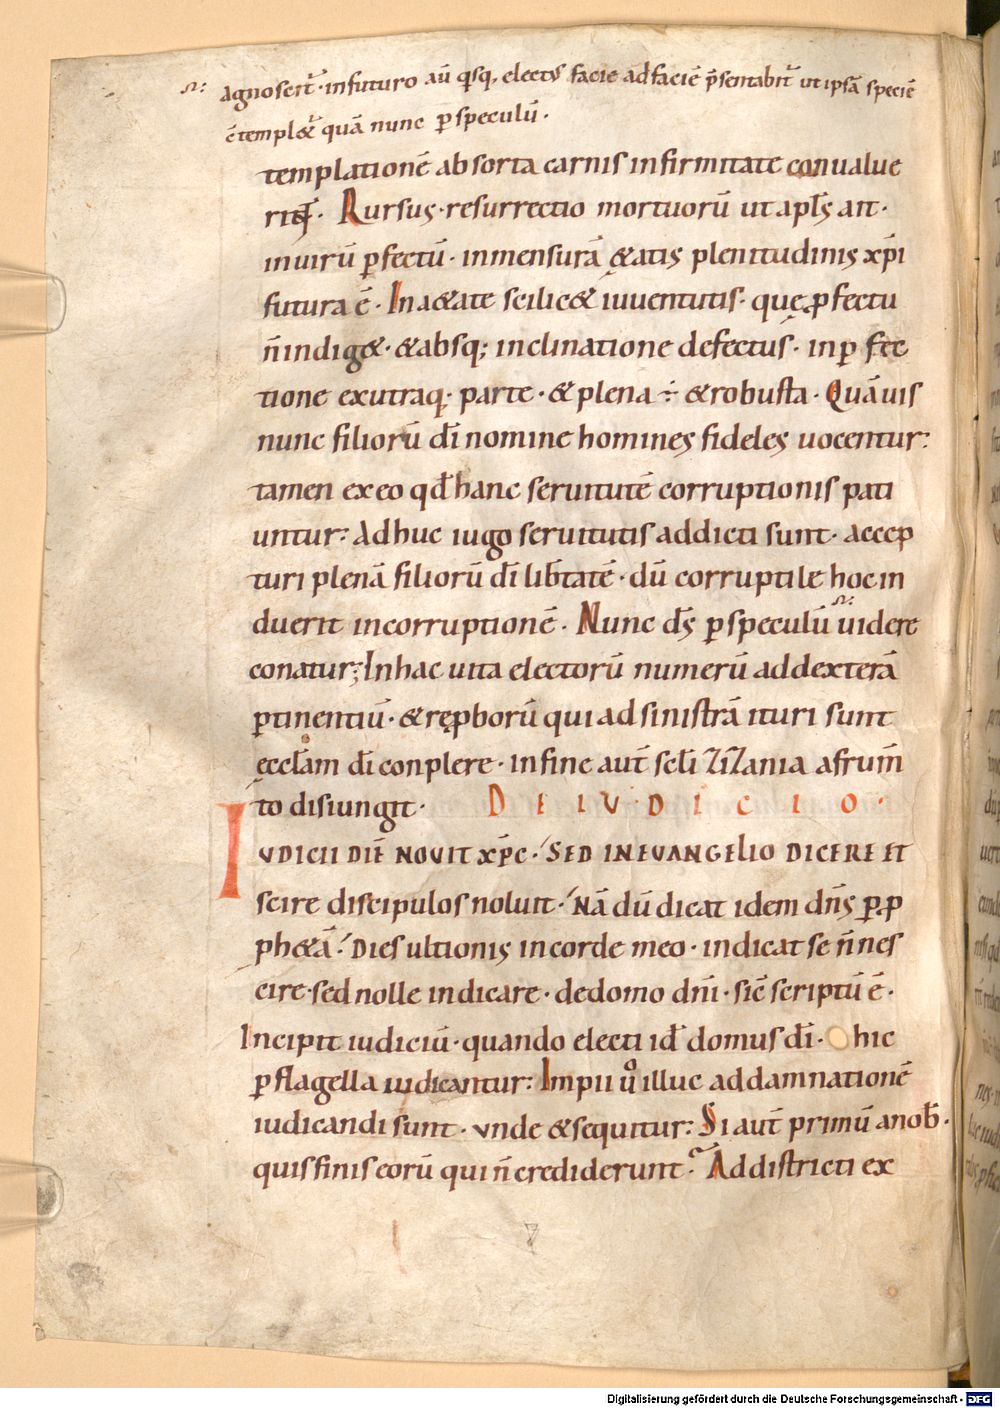 agnoscit̄· in futuro aū qisq, electꝰ facie ad faciē p̄sentabit̄ ut ipsā speciē
ētempletᷣ quā nunc ꝑ speculū·
templationē absorta carnis infirmitate conualue
rit· Rursus· resurrectio mortuorū ut apl̄s ait·
in uirū ꝑfectū· in mensurā &atis plenitudinis xp̄i
futura ē· In a&ate scilic& iuuentutis· que ꝓfectu
n̄ indig&· & absq; inclinatione defectus· in ꝑfec
tione ex utraq· parte· & plena ÷ & robusta· Quāuis
nunc filiorū dī nomine homines fideles uocentur:
tamen ex eo qd̄ hanc seruitutē corruptionis pati
untur: Adhuc iugo seruitutis addicti sunt· accep
turi plenā filiorū dī lib̄tatē· dū corruptile hoc in
duerit incorruptionē· Nunc ds̄ ꝑ speculū uidere
conatur; In hac uita electorū numerū ad dexterā
ꝑtinentiū· & rep̱borū qui ad sinistrā ituri sunt
eccl̄am dī conplere· in fine aut̄ sc̄li zizania a frum̄
to disiungit· DE IUDICIO·
IUDICII DIĒ NOUIT XP̄C· SED IN EUANGELIO DICERE ET
scire discipulos noluit· Nā dū dicat idem dn̄s ꝑ ꝓ
ph&ā· Dies ultionis in corde meo· indicat se n̄ nes
cire· sed nolle indicare· de domo dn̄i· sic̄ scriptū ē·
Incipit iudiciū· quando electi id̄ domus dī· hic
ꝑ flagella iudicantur: Impii ů illuc ad damnationē
iudicandi sunt· unde & sequitur: Si aut̄ primū a nob̄·
quis finis eorū qui n̄ crediderunt· Ad districti ex
Digitalisierung gefördert durch die Deutsche Forschungsgemeinschaft - DFG